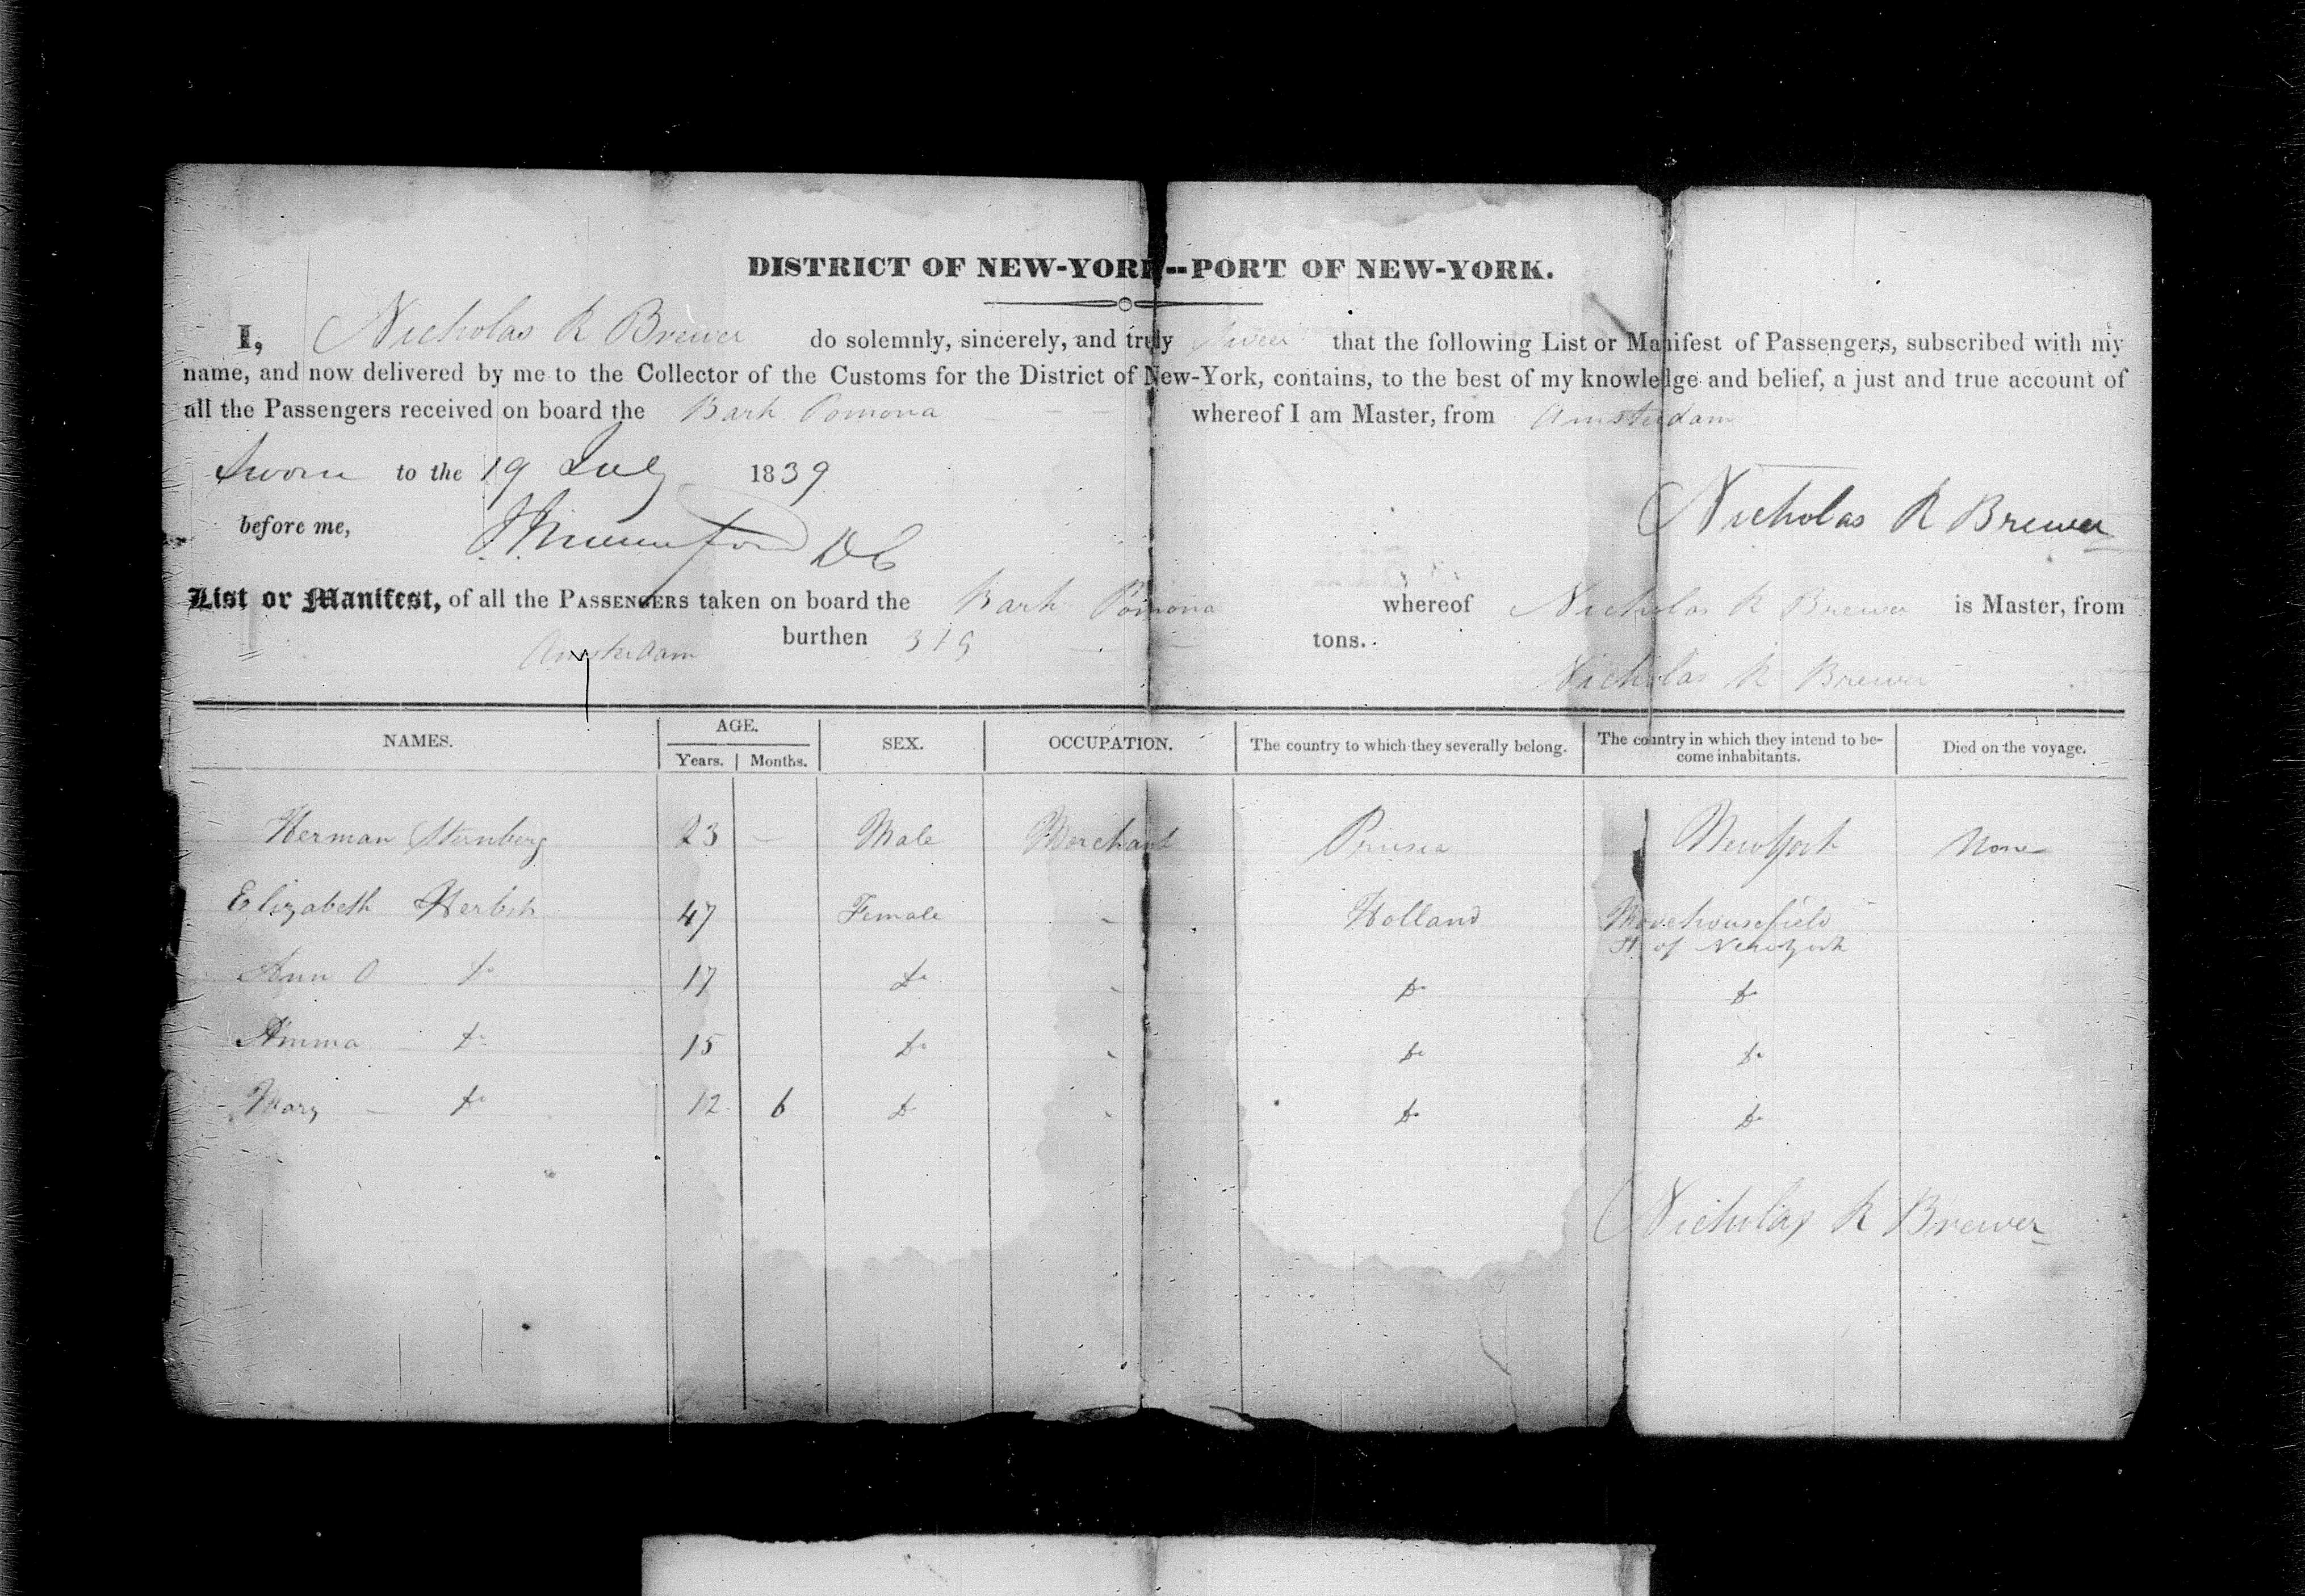 DISTRICT OF NEW-YORK--PORT OF NEW-YORK.
I, Nicholas R Brewer do solemnly, sincerely, and truly Swear that the following List or Manifest of Passengers, subscribed with my
name, and now delivered by me to the Collector of the Customs for the District of New-York, contains, to the best of my knowledge and belief, a just and true account of
all the Passengers received on board the Bark Pomona whereof I am Master, from Amsterdam
Sworn to the 19 July 1839
Nicholas R Brewer
before me, DC
List or Manifest, of all the PASSENGERS taken on board the Bark Pomona whereof Nicholas R Brewer is Master, from
Amsterdam burthen 319 tons.
Nicholas R Brewer
NAMES. AGE. Years. Months. SEX. OCCUPATION. The country to which they severally belong. The country in which they intend to become inhabitants. Died on the voyage.
Herman Sternberg 23 — Male Merchant Prusia New York None
Elizabeth 47 Female Holland
St of New York
Ann O do 17 do do do
Amma do 15 do do do
Mary do 12 6 do do do
Nicholas R Brewer